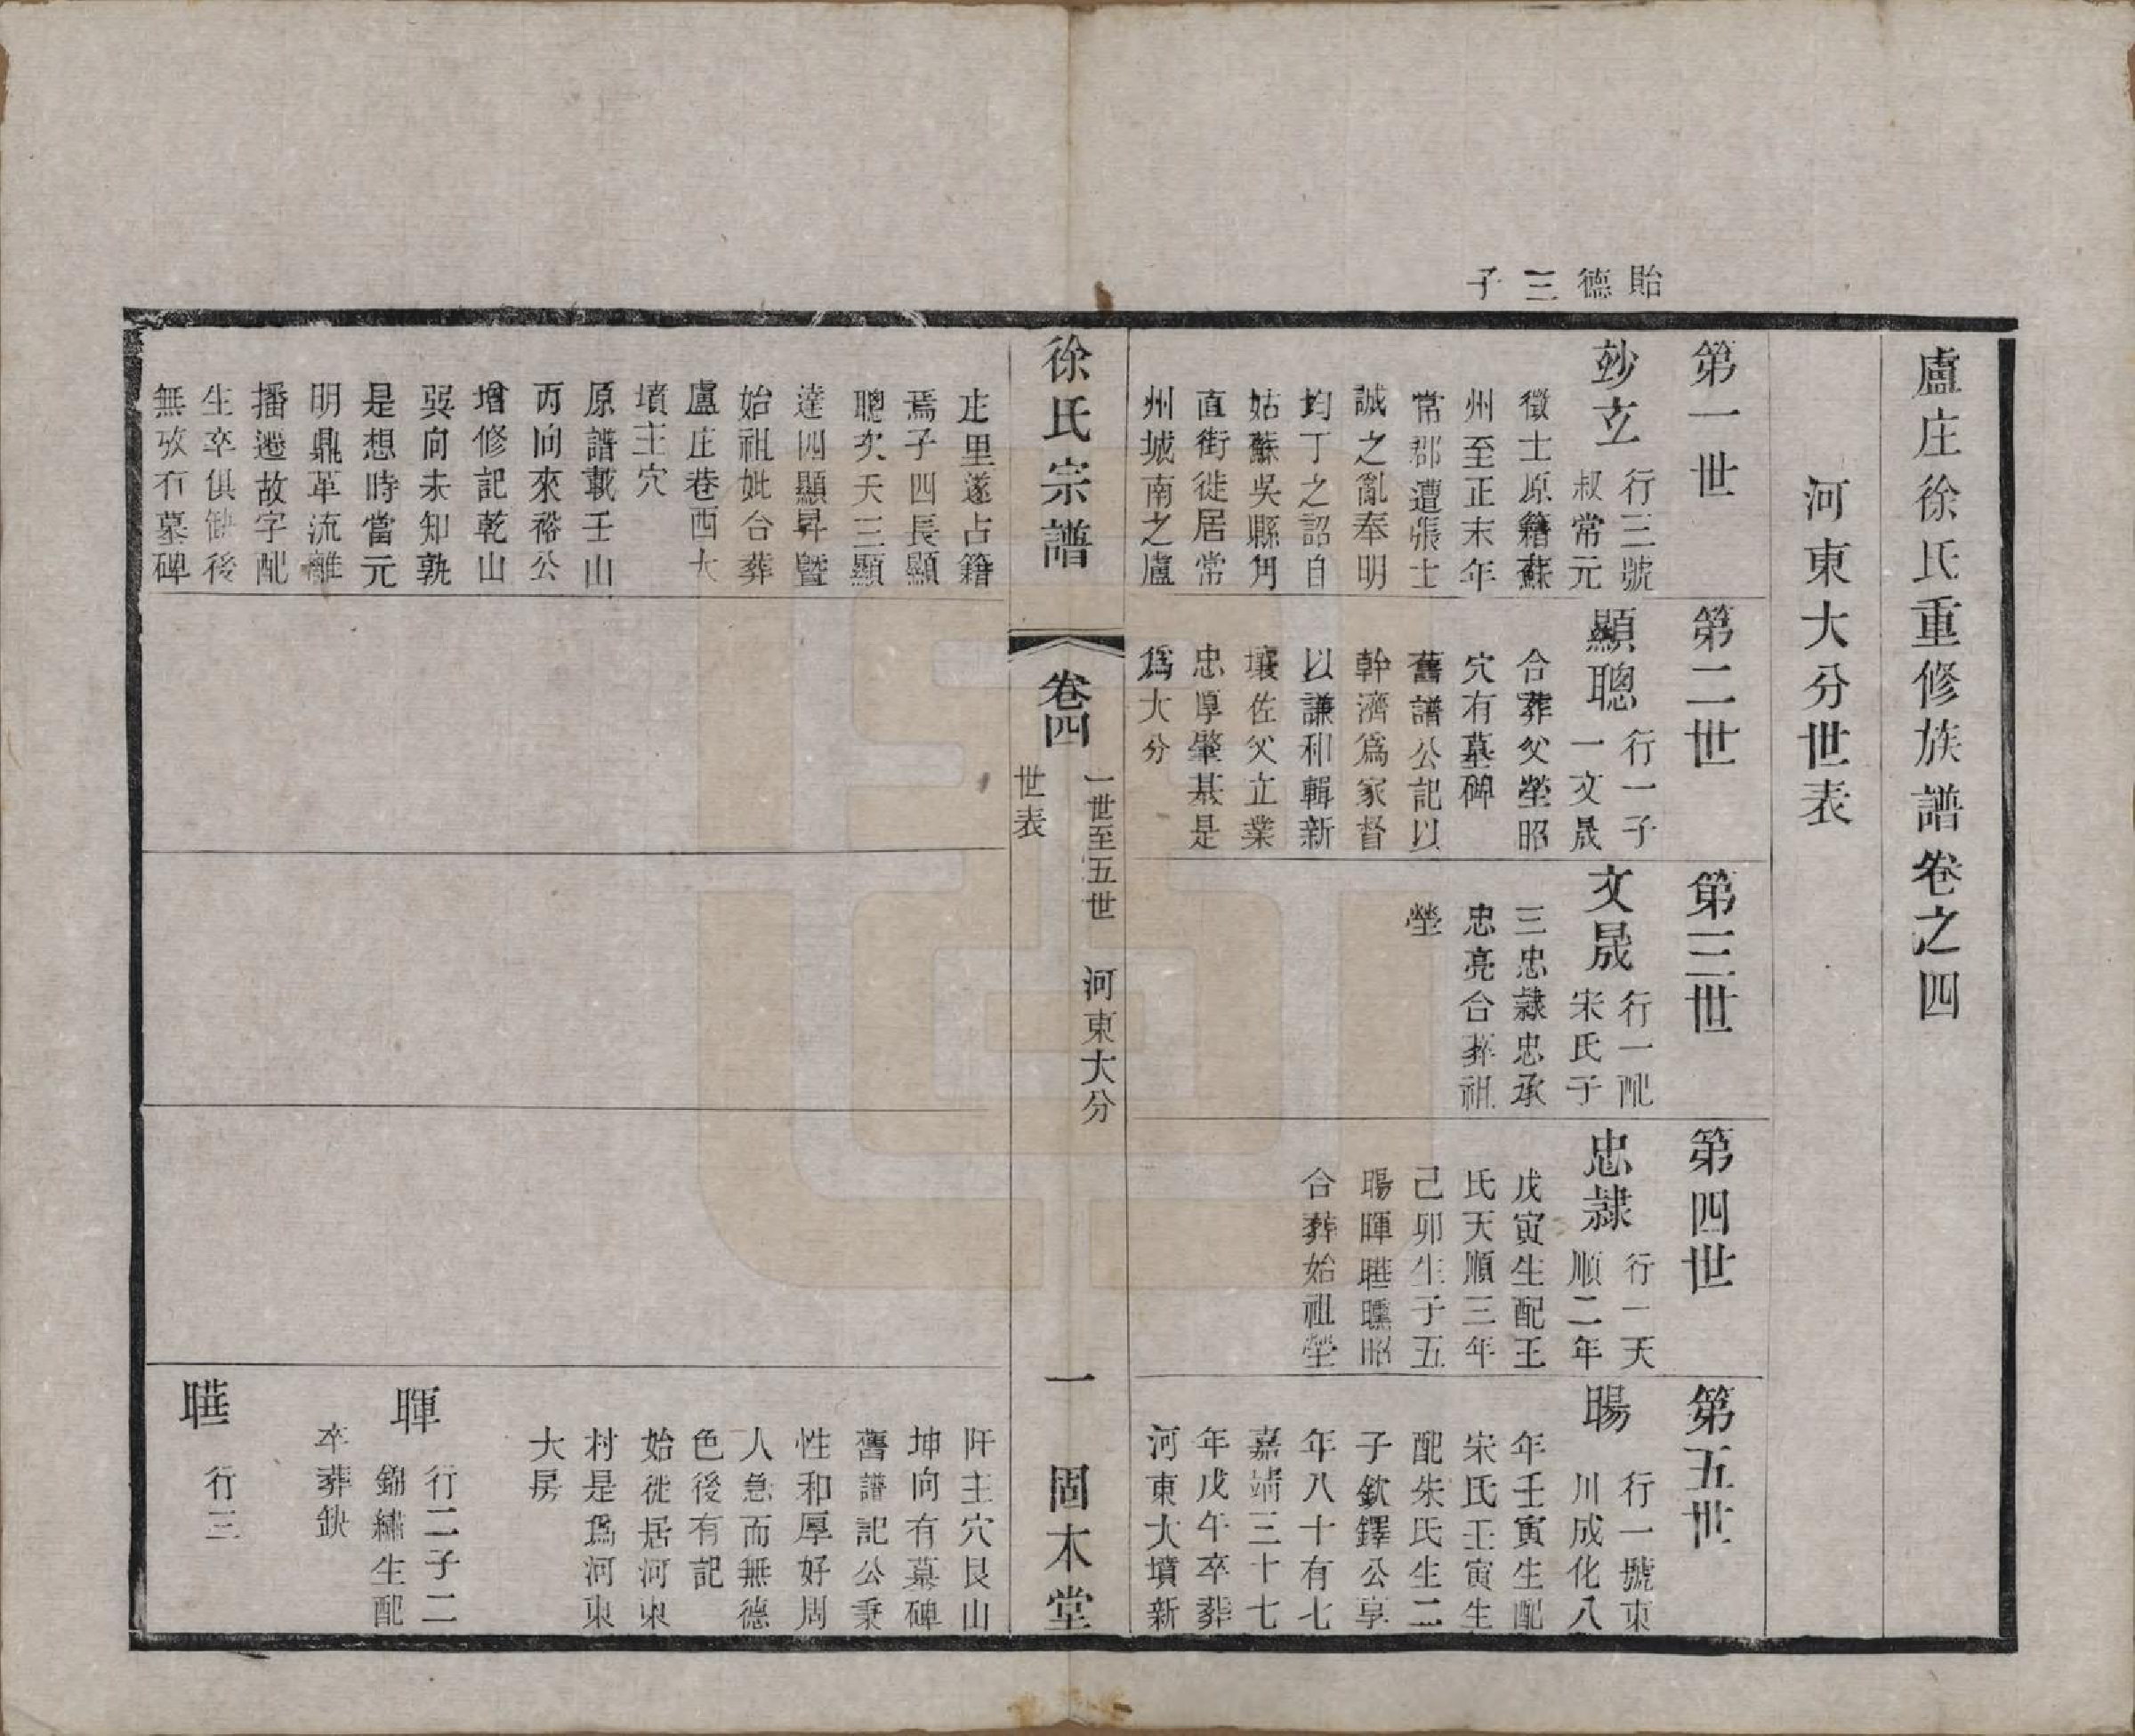 盧庄徐氏重修族譜卷之四
河東大分世表
貽德三子
第一世
玅玄
行三號
叔常元
徵士原籍蘇
州至正末年
常郡遭張士
誠之亂奉明
均丁之詔自
姑蘇吳縣甪
直街徙居常
州城南之盧
第二世
顯聰
行一子
一文晟
合葬父塋昭
穴有墓碑
舊譜公記以
幹濟爲家督
以謙和輯新
壤佐父立業
忠厚肇基是
爲大分
第三世
文晟
行一配
宋氏子
三忠隷忠承
忠亮合葬祖
塋
第四世
忠隷
行一天
順二年
戊寅生配王
氏天順三年
己卯生子五
暘暉曗曛昭
合葬始祖塋
第五世
暘
行一號東
川成化八
年壬寅生配
宋氏壬寅生
配朱氏生二
子欽鐸公享
年八十有七
嘉靖三十七
年戊午卒葬
河東大墳新
徐氏宗譜
卷四
一世至五世 河東大分
世表
一
固木堂
庄里遂占籍
焉子四長顯
聰次天三顯
達四顯昇曁
始祖妣合葬
盧庄巷西大
墳主穴
原譜載壬山
丙向來裕公
增修記乾山
巽向未知孰
是想時當元
明鼎革流離
播遷故字配
生卒俱缺後
無攷有墓碑
阡主穴艮山
坤向有墓碑
舊譜記公秉
性和厚好周
人急而無德
色後有記
始徙居河東
村是爲河東
大房
暉
行二子二
錦繡生配
卒葬缺
曗
行三